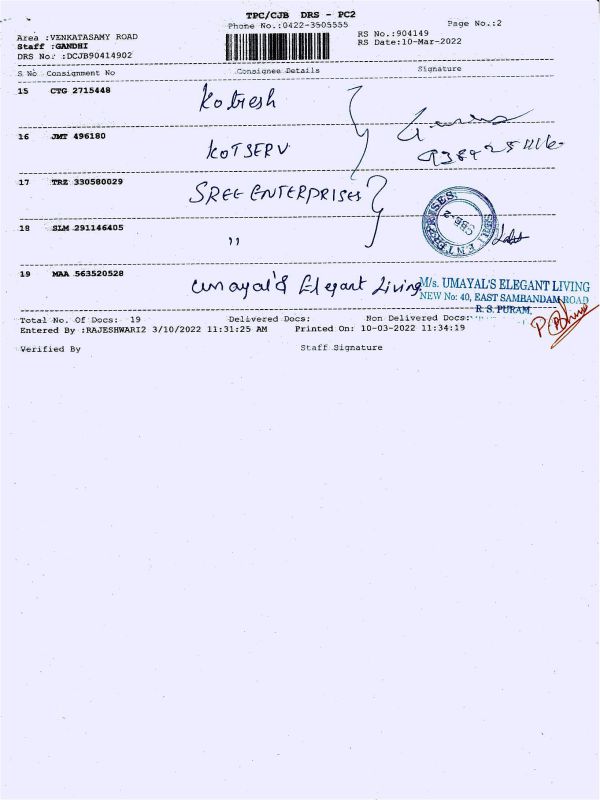 TPC/CJB DRS - PC2
Phone No.:0422-3505555
Page No.:2
Area :VENKATASAMY ROAD
RS No.:904149
Staff :GANDHI
RS Date:10-Mar-2022
DRS No: :DCJB90414902
S No Consignment No Consignee Details Signature
15 CTG 2715448 Kotresh
16 JMT 496180 KOTSERV
17 TRZ 330580029 SREE ENTERPRISES
18 SLM 291146405 "
ENTERPRISES
CBE-2
19 MAA 563520528 Umayal's Elegant Living
M/s. UMAYAL'S ELEGANT LIVING
NEW No: 40, EAST SAMBANDAM ROAD
R. S. PURAM,
Total No. Of Docs: 19 Delivered Docs: Non Delivered Docs:
Entered By :RAJESHWARI2 3/10/2022 11:31:25 AM Printed On: 10-03-2022 11:34:19
Verified By Staff Signature